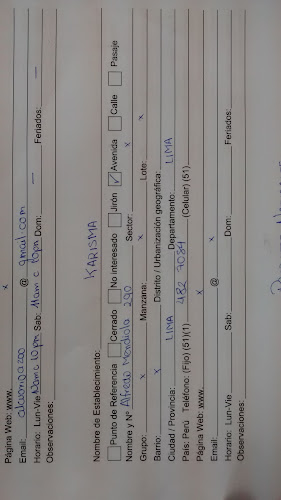 Página Web: www. x
Email: @ gmail.com
Horario: Lun-Vie 10pm Sab: 11am 10pm Dom: — Feriados: —
Observaciones:
Nombre de Establecimiento: KARISMA
☐ Punto de Referencia ☐ Cerrado ☐ No interesado ☐ Jirón ☑ Avenida ☐ Calle ☐ Pasaje
Nombre y Nº Alfredo Mendiola 290 Sector: x
Grupo: x Manzana: x Lote: x
Barrio: x Distrito / Urbanización geográfica:
Ciudad / Provincia: LIMA Departamento: LIMA
País: Perú Teléfono: (Fijo) (51)(1) 482 7084 (Celular) (51)
Página Web: www. x
Email: @ x
Horario: Lun-Vie Sab: Dom: Feriados:
Observaciones: